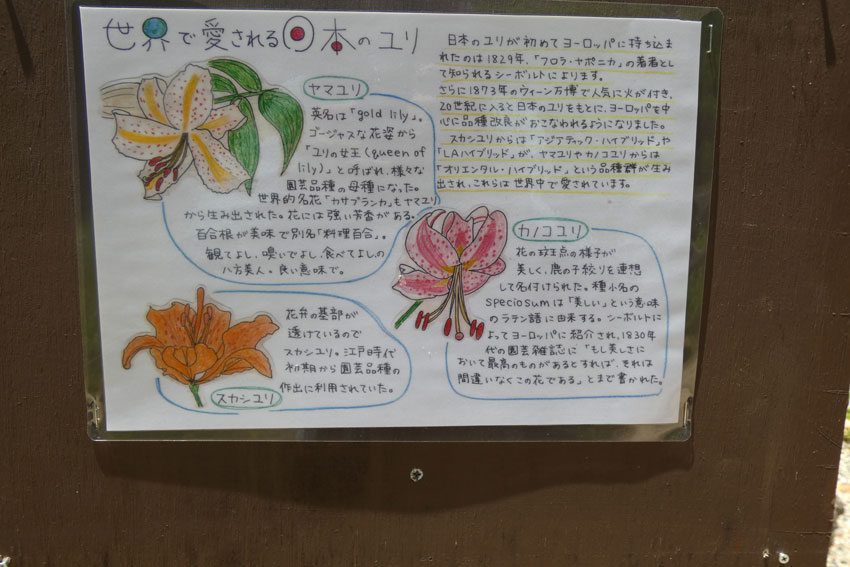 世界で愛される日本のユリ
日本のユリが初めてヨーロッパに持ち込ま
れたのは1829年、「フロラ・ヤポニカ」の著者とし
て知られるシーボルトによります。
さらに1873年のウィーン万博で人気に火が付き、
20世紀に入ると日本のユリをもとに、ヨーロッパを中
心に品種改良がおこなわれるようになりました。
スカシユリからは「アジアティック・ハイブリッド」や
「LAハイブリッド」が、ヤマユリやカノコユリからは
「オリエンタル・ハイブリッド」という品種群が生み
出され、これらは世界中で愛されています。
ヤマユリ
英名は「gold lily」。
ゴージャスな花姿から
「ユリの女王(queen of
lily)」と呼ばれ、様々な
園芸品種の母種になった。
世界的名花「カサブランカ」もヤマユリ
から生み出された。花には強い芳香がある。
百合根が美味で別名「料理百合」。
観てよし、嗅いでよし、食べてよしの
八方美人。良い意味で。
カノコユリ
花の斑点の様子が
美しく、鹿の子絞りを連想
して名付けられた。種小名の
speciosumは「美しい」という意味
のラテン語に由来する。シーボルトに
よってヨーロッパに紹介され、1830年
代の園芸雑誌に「もし美しさに
おいて最高のものがあるとすれば、それは
間違いなくこの花である」とまで書かれた。
花弁の基部が
透けているので
スカシユリ。江戸時代
初期から園芸品種の
作出に利用されていた。
スカシユリ